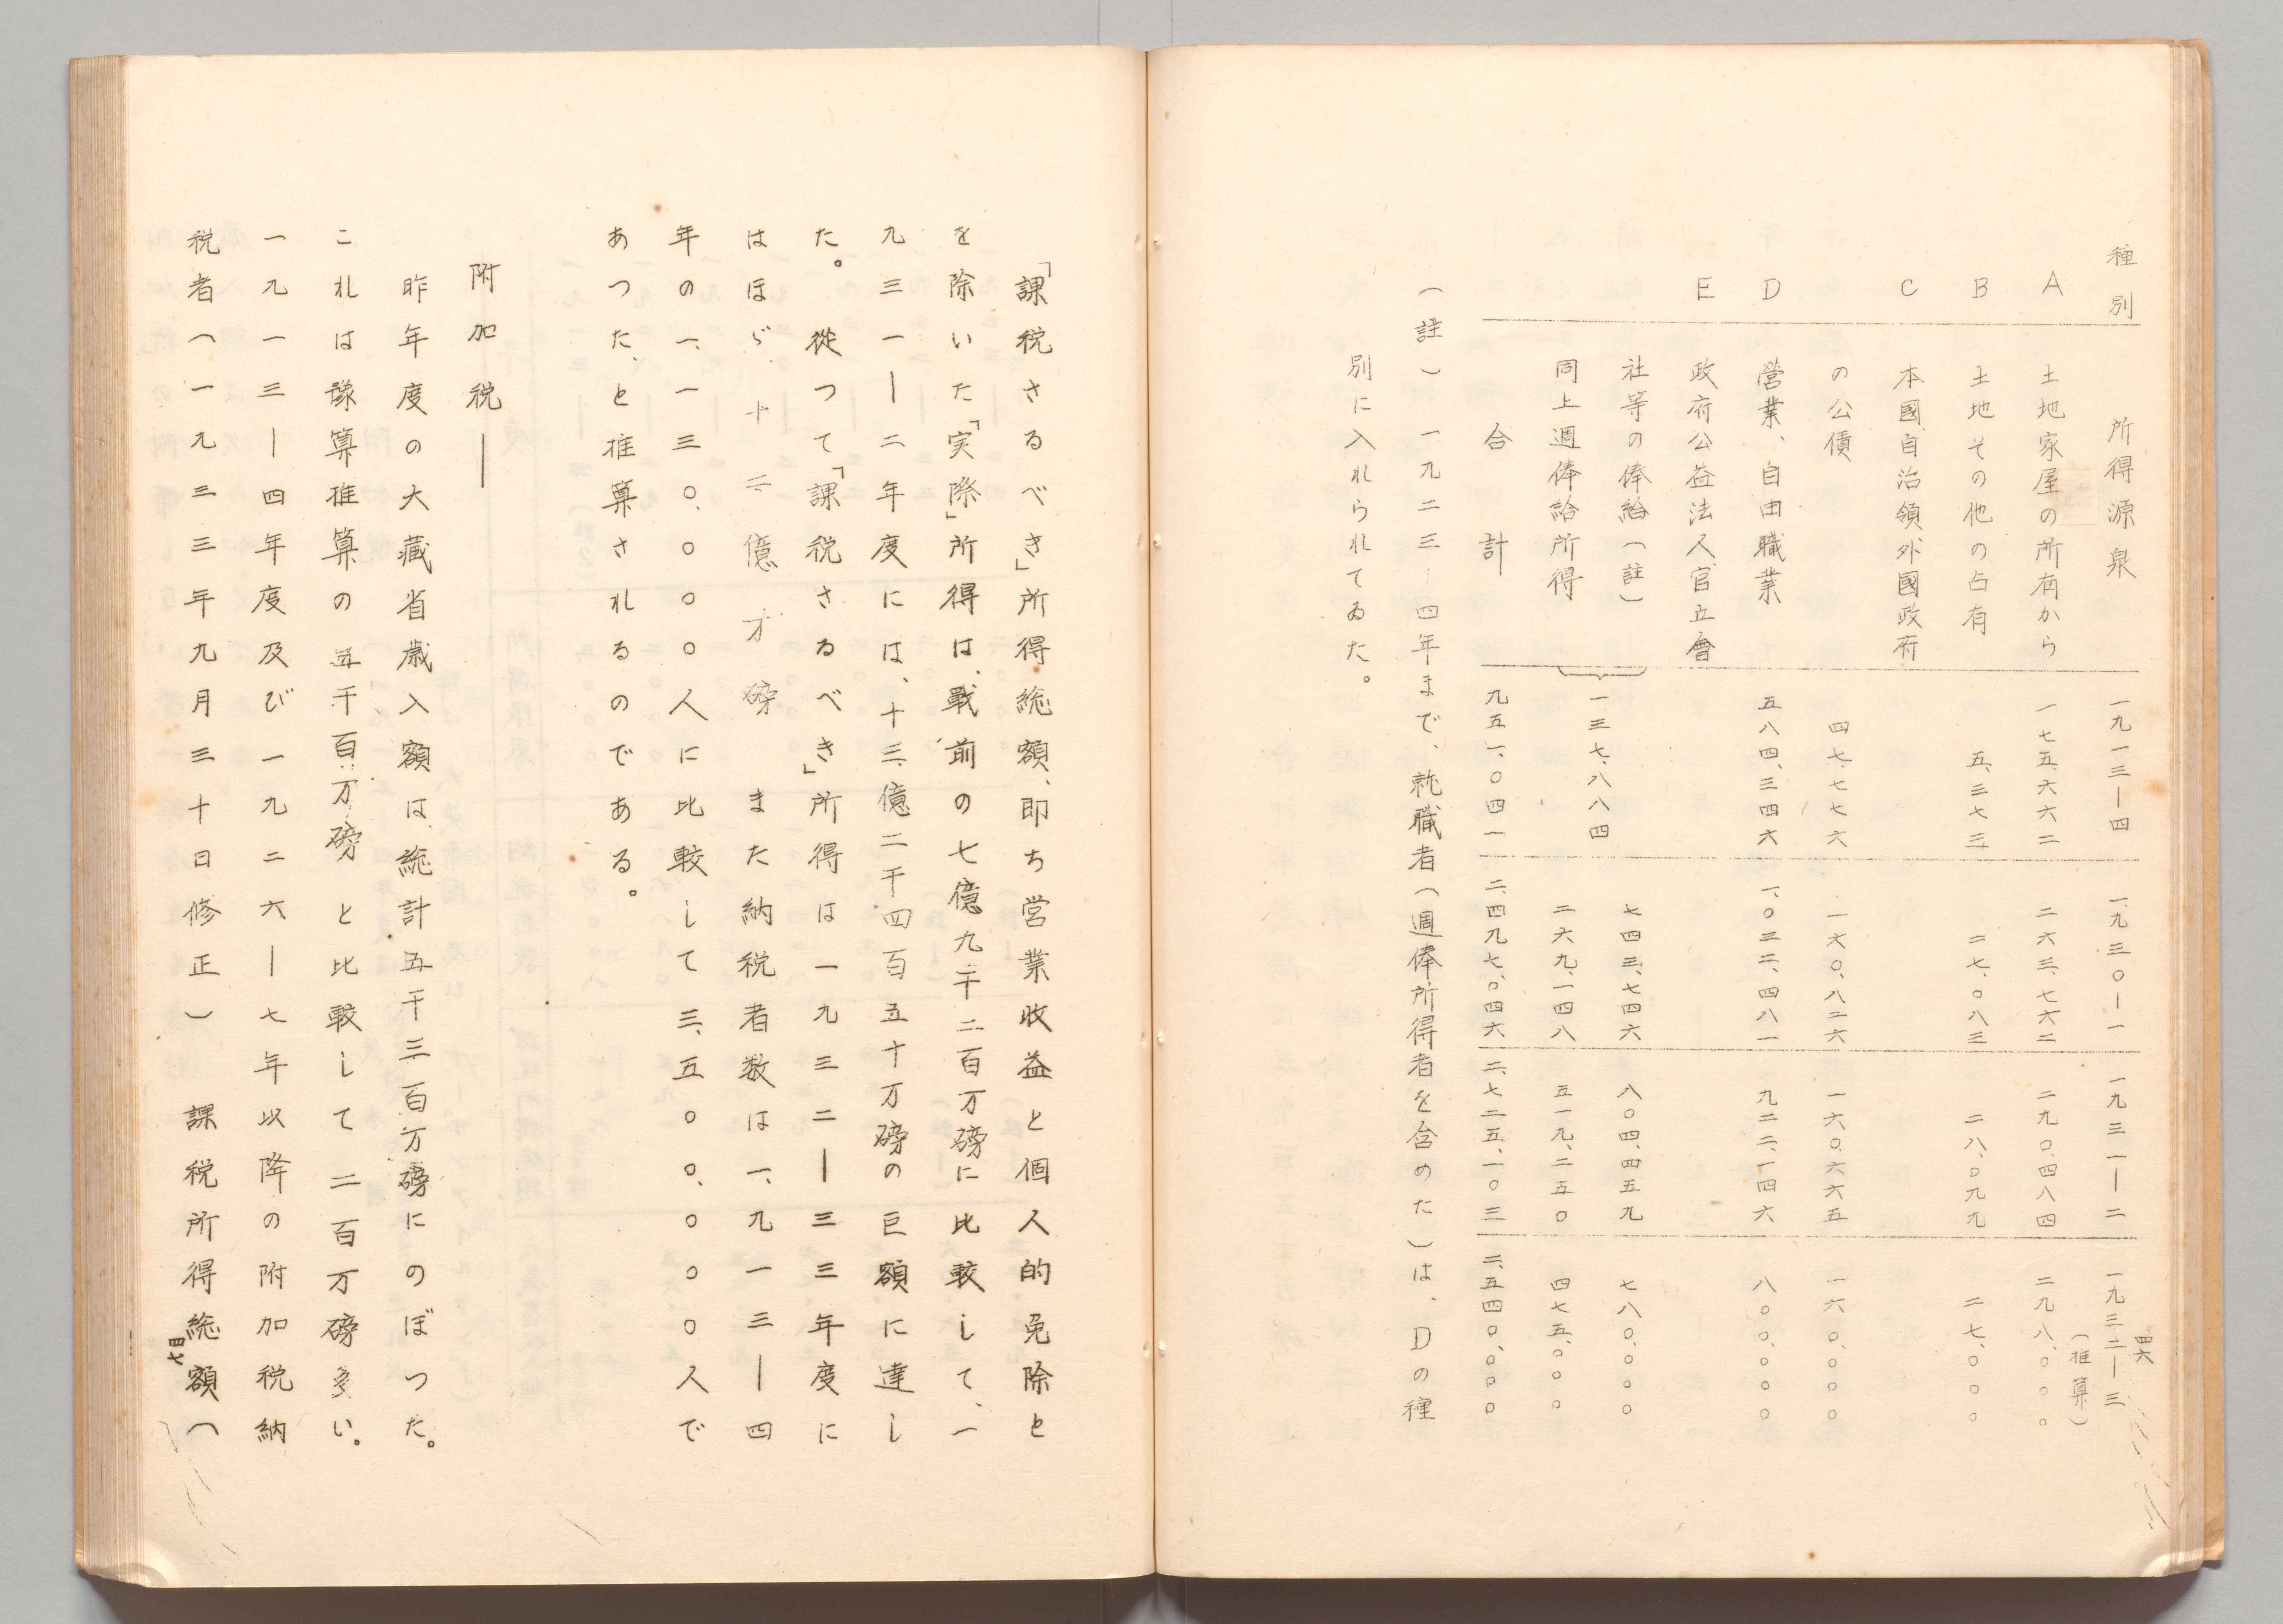 四六
種別　所得源泉　一九一三―四　一九三〇―一　一九三一―二　一九三二―三
（推算）
A　土地家屋の所有から　一七五、六六二　二六三、七六二　二九〇、四八四　二九八、〇〇〇
B　土地その他の占有　五、三七三　二七、〇八三　二八、〇九九　二七、〇〇〇
C　本國自治領、外國政府
の公債　四七、七七六　一六〇、八二六　一六〇、六六五　一六〇、〇〇〇
D　營業、自由職業　五八四、三四六　一、〇三二、四八一　九二二、一四六　八〇〇、〇〇〇
E　政府公益法人、官立會
社等の俸給（註）　七四三、七四六　八〇四、四五九　七八〇、〇〇〇
一三七、八八四
同上週俸給所得　二六九、一四八　五一九、二五〇　四七五、〇〇〇
合計　九五一、〇四一　二、四九七、〇四六　二、七二五、一〇三　二、五四〇、〇〇〇
（註）一九二三―四年まで、就職者（週俸所得者を含めた）は、Dの種
別に入れられてゐた。
「課税さるべき」所得総額、即ち営業收益と個人的免除と
を除いた「実際」所得は、戰前の七億九千二百万磅に比較して、一
九三一―二年度には、十三億二千四百五十万磅の巨額に達し
た。從つて「課税さるべき」所得は一九三二―三三年度に
はほゞ十二億万磅　また納税者数は一、九一三―四
年の一、一三〇、〇〇〇人に比較して三、五〇〇、〇〇〇人で
あつた、と推算されるのである。
附加税―
昨年度の大藏省歳入額は、総計五千三百万磅にのぼつた。
これは豫算推算の五千百万磅と比較して二百万磅多い。
一九一三―四年度及び一九二六―七年以降の附加税納
税者（一九三三年九月三十日修正）　課税所得総額（
四七